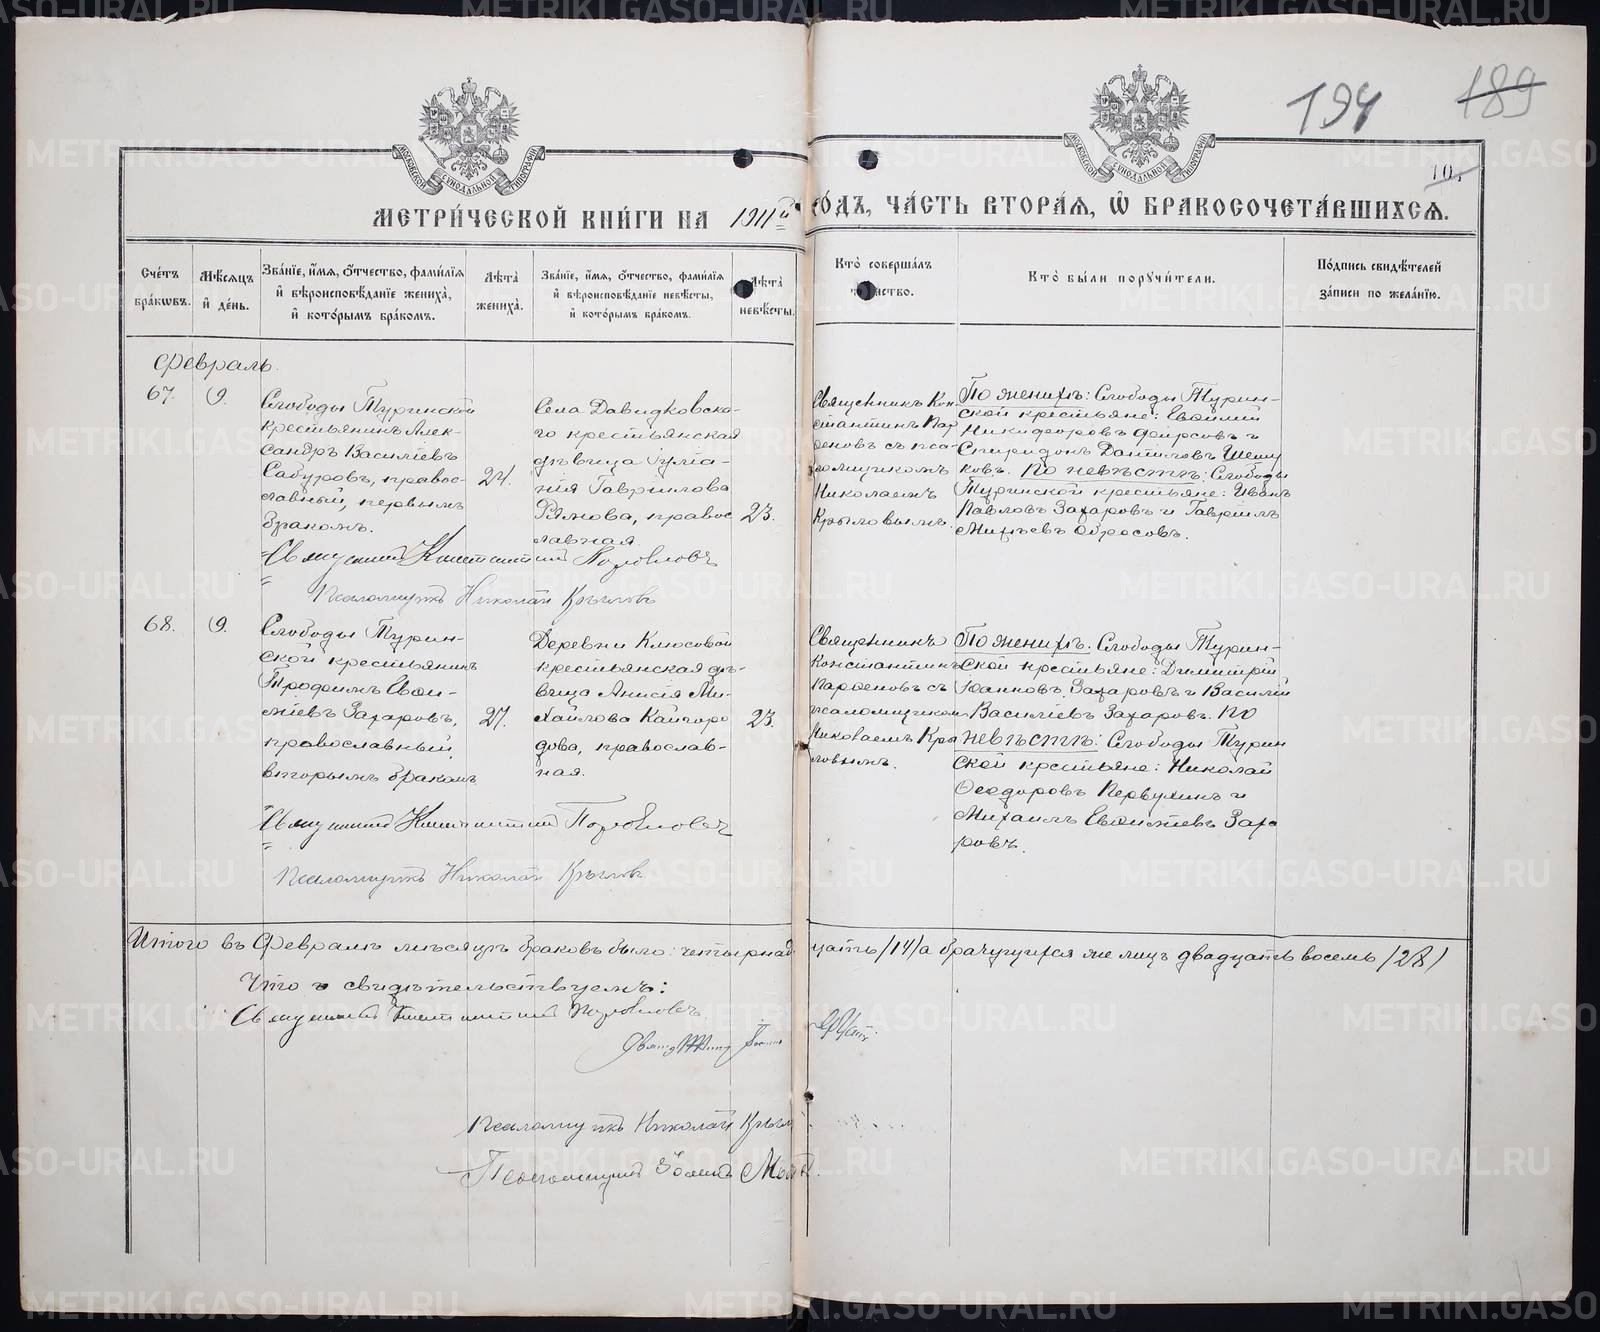 194
189
10.
МОСКОВСКОЙ СѴНОДАЛЬНОЙ ТИПОГРАФІИ
МОСКОВСКОЙ СѴНОДАЛЬНОЙ ТИПОГРАФІИ
МЕТРИ́ЧЕСКОЙ КНИ́ГИ НА 1911й ГО́ДЪ, ЧА́СТЬ ВТОРА́Ѧ, Ѽ БРАКОСОЧЕТА́ВШИХСѦ.
Сче́тъ бра́ковъ.
Мѣ́сѧцъ и҆ де́нь.
Зва́нїе, и҆́мѧ, ѻ҆́тчество, фами́лїѧ и҆ вѣроисповѣ́данїе жениха̀, и҆ кото́рымъ бра́комъ.
Лѣта̀ жениха̀.
Зва́нїе, и҆́мѧ, ѻ҆́тчество, фами́лїѧ и҆ вѣроисповѣ́данїе невѣ́сты, и҆ кото́рымъ бра́комъ.
Лѣта̀ невѣ́сты.
Кто̀ соверша́лъ таинство.
Кто̀ бы́ли порꙋчи́тели.
По́дпись свидѣ́телей за́писи по жела́нїю.
Февраль.
67.
9.
Слободы Туринской
крестьянинъ Алек-
сандръ Василіевъ
Сабуровъ, правос-
лавный, первымъ
бракомъ.
24.
Села Давидковска-
го крестьянская
дѣвица Іуліа-
нія Гавриилова
Рямова, правос
лавная.
23.
Священникъ Кон-
стантинъ Пар
ѳеновъ съ пса-
ломщикомъ
Николаемъ
Крыловымъ.
По женихѣ: Слободы Турин-
ской крестьяне: Евѳимій
Никифоровъ Фирсовъ и
Спиридонъ Даниловъ Шешу
ковъ. По невѣстѣ: Слободы
Туринской крестьяне: Иванъ
Павловъ Захаровъ и Гавріилъ
Обросовъ.
Священникъ Константинъ Парѳеновъ
Псаломщикъ Николай Крыловъ
68.
9.
Слободы Турин-
ской крестьянинъ
Трофимъ Евѳи-
міевъ Захаровъ,
православный
вторымъ бракомъ
27.
Деревни Клюсовой
крестьянская дѣ-
вица Анисія Ми-
хайлова Кайгоро
дова, православ-
ная.
23.
Священникъ
Константинъ
Парѳеновъ съ
псаломщикомъ
Николаемъ Кры
ловымъ.
По женихѣ. Слободы Турин-
ской крестьяне: Димитрій
Іоанновъ Захаровъ и Василій
Василіевъ Захаровъ. По
невѣстѣ: Слободы Турин
ской крестьяне: Николай
Ѳеодоровъ Первухинъ и
Михаилъ Евѳиміевъ Заха
ровъ.
Священникъ Константинъ Парѳеновъ
Псаломщикъ Николай Крыловъ
Итого въ Февралѣ мѣсяцѣ браковъ было: четырнадцать /14/ а брачущихся же лицъ двадцать восемь /28/
Что и свидѣтельствуемъ:
Священникъ Константинъ Парѳеновъ
Псаломщикъ Николай Крыловъ
Псаломщикъ Іоаннъ
METRIKI.GASO-URAL.RU